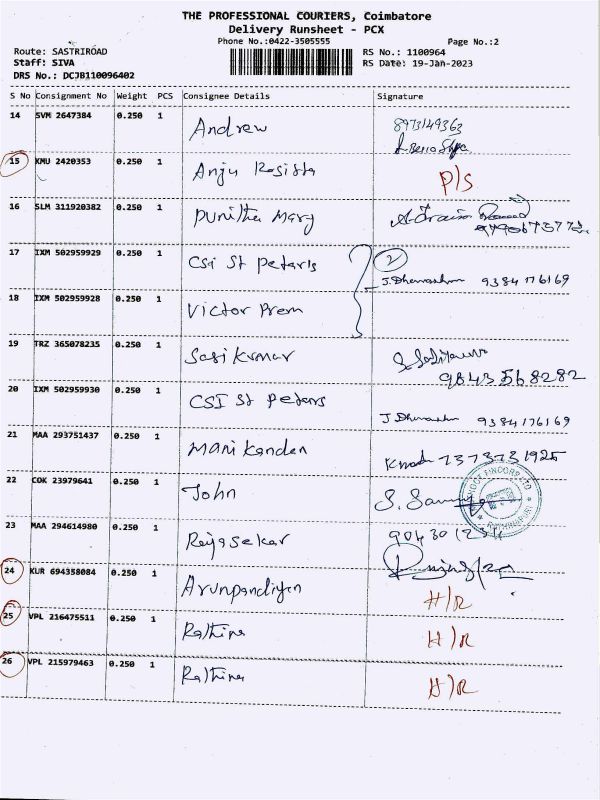 THE PROFESSIONAL COURIERS, Coimbatore
Delivery Runsheet - PCX
Phone No.:0422-3505555 Page No.:2
Route: SASTRIROAD RS No.: 1100964
Staff: SIVA RS Date: 19-Jan-2023
DRS No.: DCJB110096402
S No Consignment No Weight PCS Consignee Details Signature
14 SVM 2647384 0.250 1 Andrew 8973149363
15 KMU 2420353 0.250 1 Anju Rosista P/S
16 SLM 311920382 0.250 1 Punitha Mary
17 IXM 502959929 0.250 1 CSI St Petaris 2
J. Dhanashm 9384176169
18 IXM 502959928 0.250 1 Victor Prem
19 TRZ 365078235 0.250 1 Sasikumar
9843568282
20 IXM 502959930 0.250 1 CSI St Petars J. Dhanashm 9384176169
21 MAA 293751437 0.250 1 Manikandan 7373731925
22 COK 23979641 0.250 1 John S.
23 MAA 294614980 0.250 1 Rajasekar
24 KUR 694358084 0.250 1 Arunpandiyan H/R
25 VPL 216475511 0.250 1 Rathina H/R
26 VPL 215979463 0.250 1 Rathina H/R